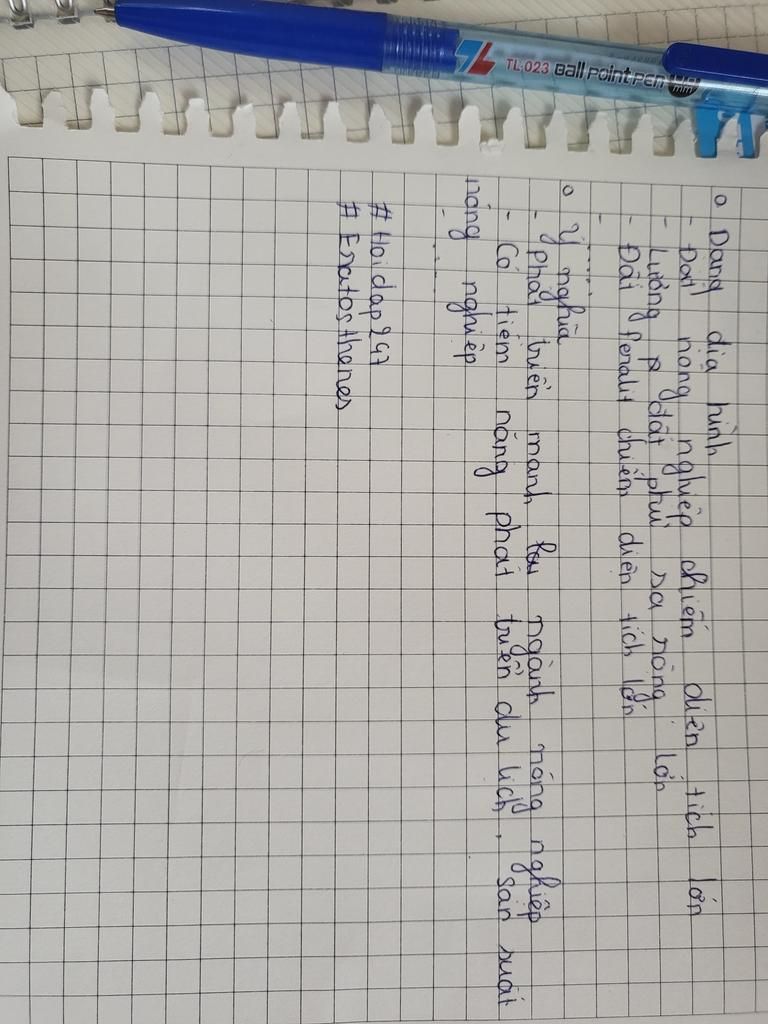 TL-023 Ball point pen
o Dạng địa hình
- Đất nông nghiệp chiếm diện tích lớn
- Lượng p đất phù sa sông lớn
- Đất feralit chiếm diện tích lớn
-
o Ý nghĩa
- Phát triển mạnh ngành nông nghiệp
- Có tiềm năng phát triển du lịch, sản suất
nông nghiệp
# Hoidap247
# Eratosthenes